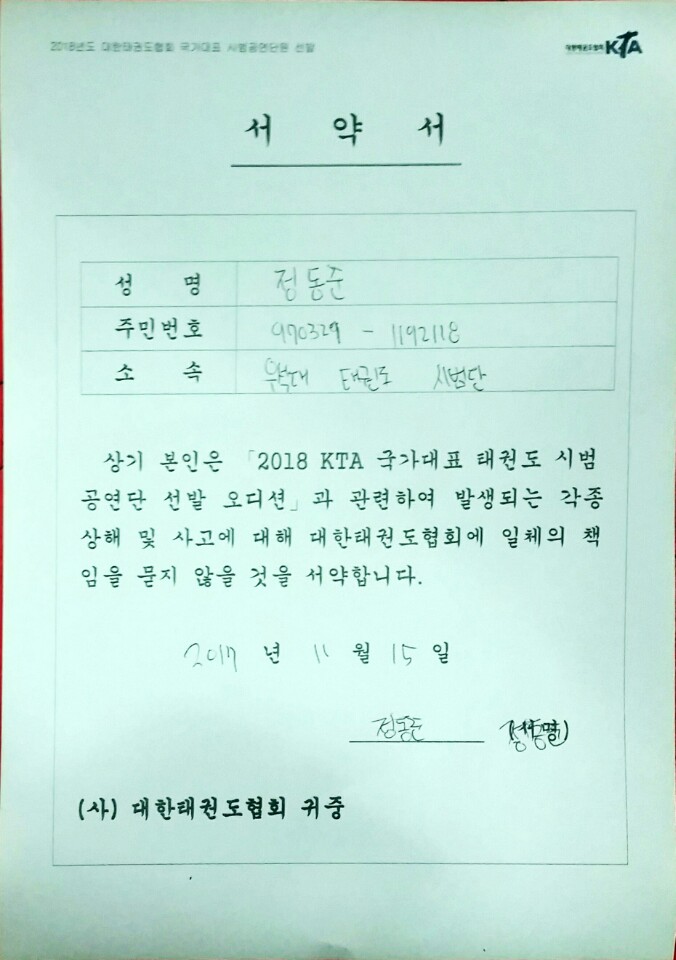 2018년도 대한태권도협회 국가대표 시범공연단원 선발
대한태권도협회 KTA
서 약 서
성 명 정동준
주민번호 970329 - 1192118
소 속 우석대 태권도 시범단
상기 본인은 「2018 KTA 국가대표 태권도 시범
공연단 선발 오디션」과 관련하여 발생되는 각종
상해 및 사고에 대해 대한태권도협회에 일체의 책
임을 묻지 않을 것을 서약합니다.
2017 년 11 월 15 일
정동준 (서명)
(사) 대한태권도협회 귀중